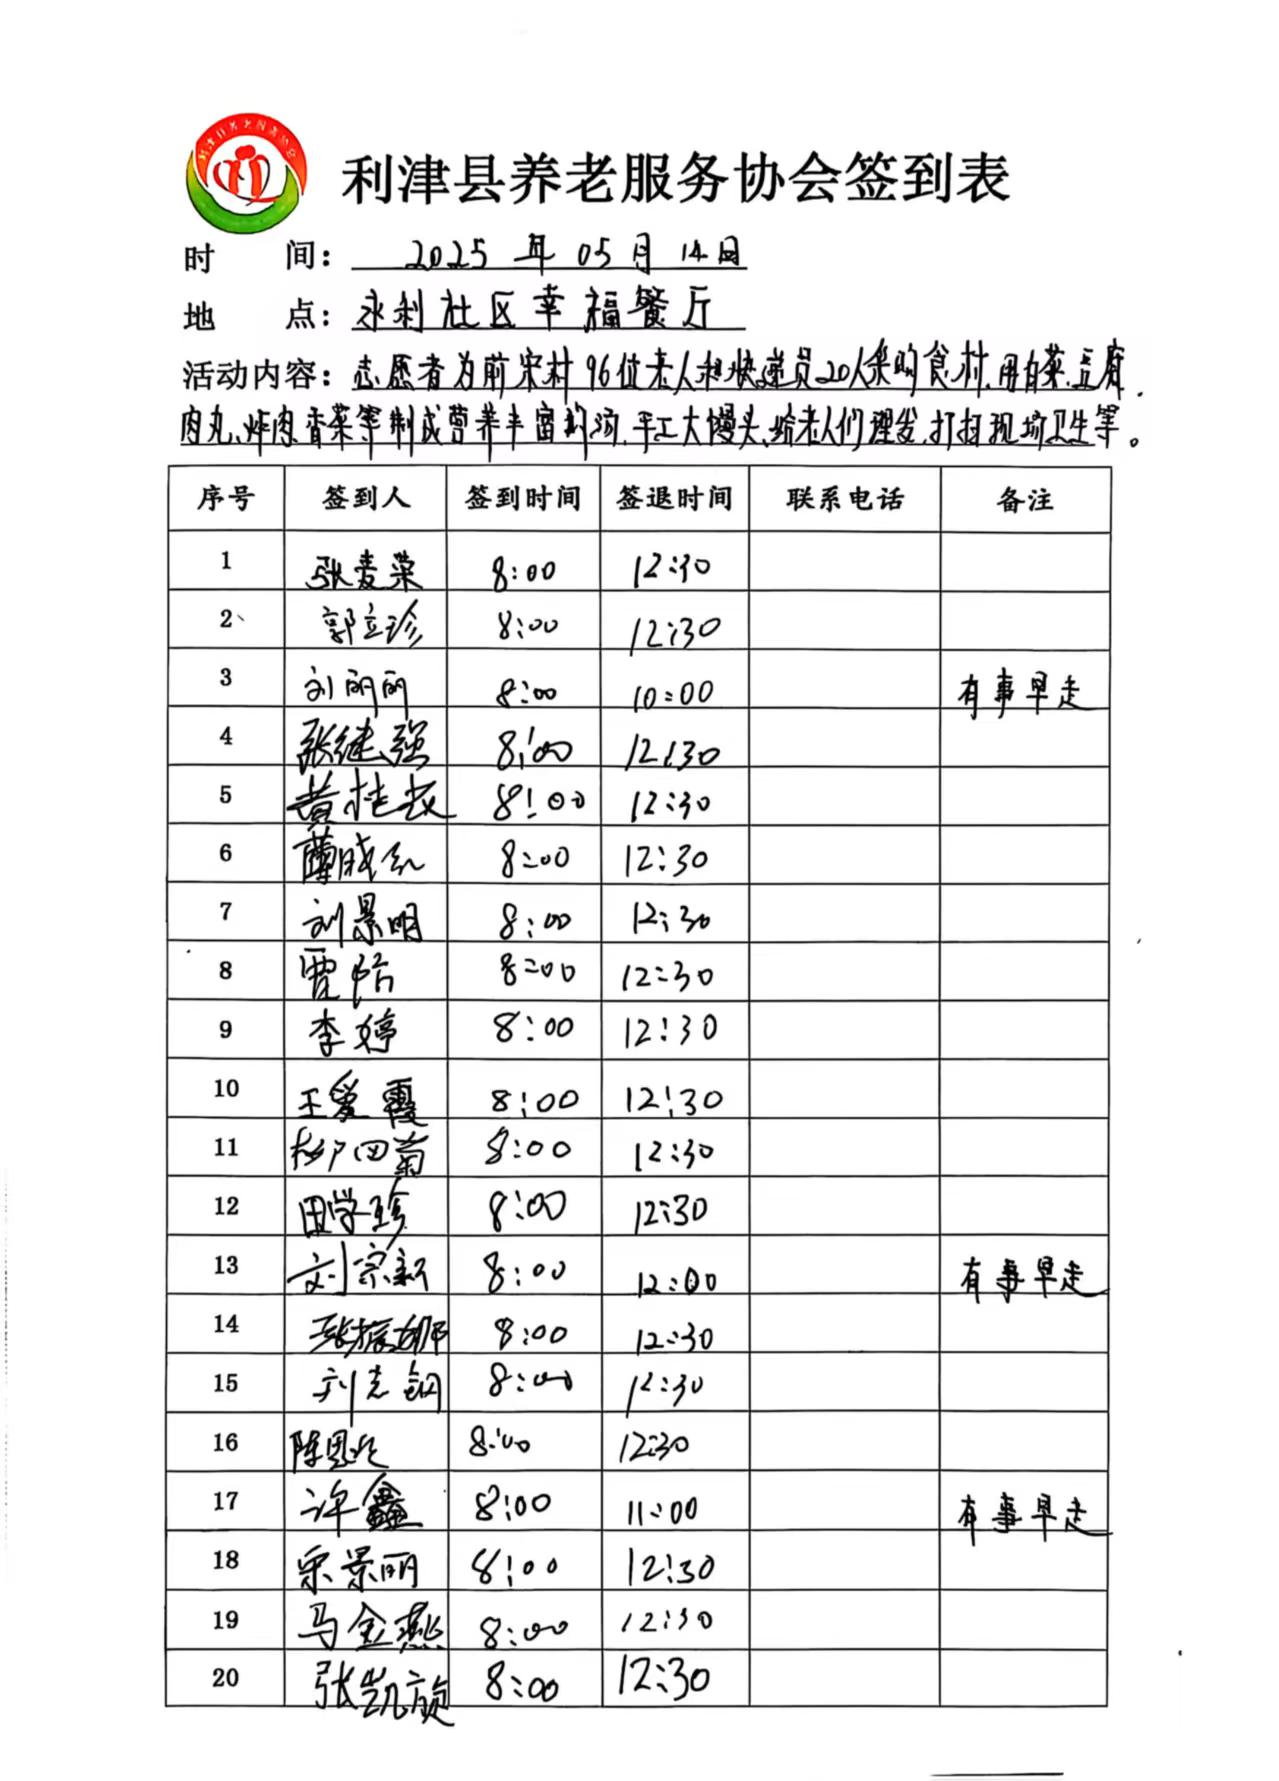 利津县养老服务协会签到表
时 间：2025年05月14日
地 点：永利社区幸福餐厅
活动内容：志愿者为前宋村96位老人和快递员20人采购食材、用白菜、豆腐、
肉丸、炸肉、香菜等制成营养丰富的汤、手工大馒头、给老人们理发、打扫现场卫生等。
序号 签到人 签到时间 签退时间 联系电话 备注
1 张麦荣 8:00 12:30
2 郭立珍 8:00 12:30
3 刘丽丽 8:00 10:00 有事早走
4 张继强 8:00 12:30
5 黄桂 8:00 12:30
6 薄晓红 8:00 12:30
7 刘景明 8:00 12:30
8 贾 8:00 12:30
9 李婷 8:00 12:30
10 王爱霞 8:00 12:30
11 田菊 8:00 12:30
12 田学珍 8:00 12:30
13 刘宗新 8:00 12:00 有事早走
14 张振娜 8:00 12:30
15 刘志钢 8:00 12:30
16 陈 8:00 12:30
17 许鑫 8:00 11:00 有事早走
18 宋景丽 8:00 12:30
19 马金燕 8:00 12:30
20 张凯旋 8:00 12:30